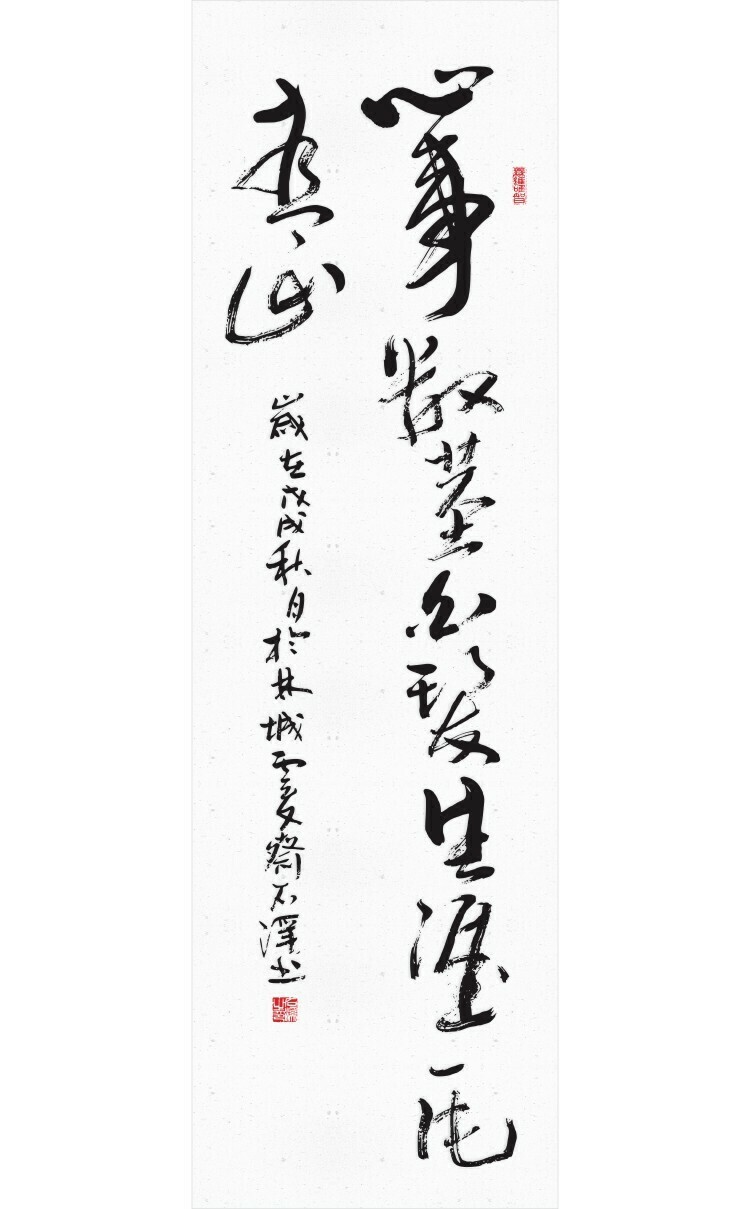 心事數莖白髮生涯一片
青山
歲在戊戌秋月於林城齋石澤書